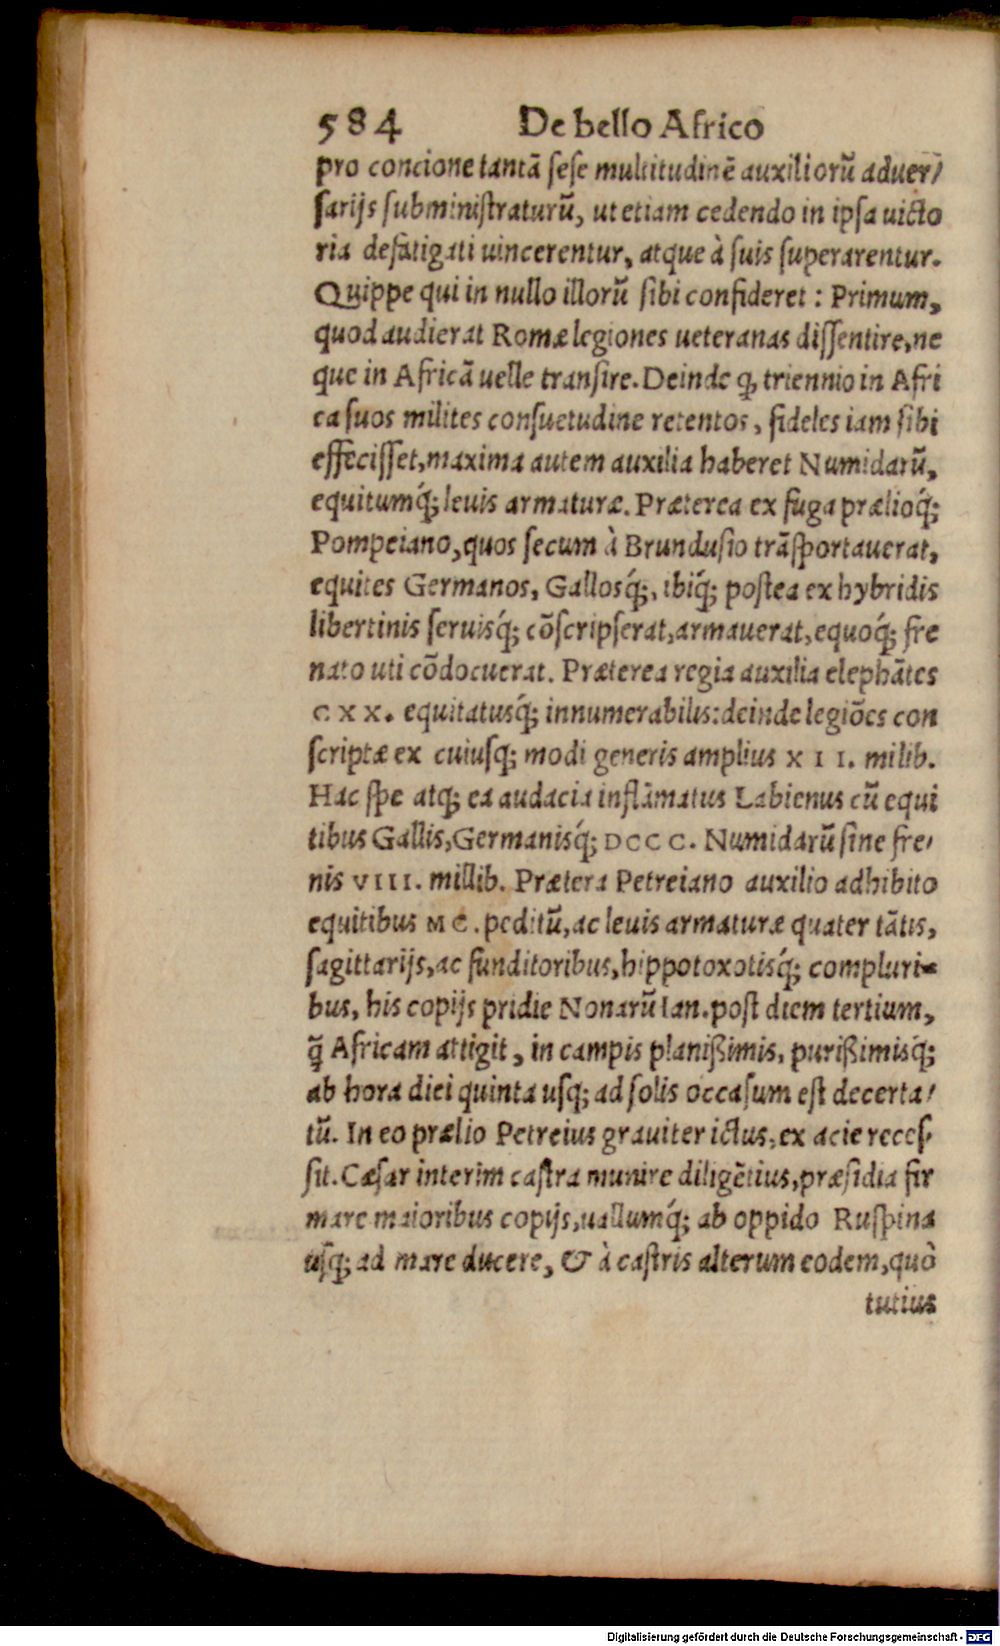 584 De bello Africo
pro concione tantā ſeſe multitudinē auxiliorū aduer/
ſarijs ſubminiſtraturū, ut etiam cedendo in ipſa uicto
ria defatigati uincerentur, atque à ſuis ſuperarentur.
Quippe qui in nullo illorū ſibi confideret: Primum,
quod audierat Romæ legiones ueteranas diſſentire, ne
que in Africā uelle tranſire. Deinde ꝙ triennio in Afri
ca ſuos milites conſuetudine retentos, fideles iam ſibi
effeciſſet, maxima autem auxilia haberet Numidarū,
equitumq́; leuis armaturæ. Præterea ex fuga prælioq́;
Pompeiano, quos ſecum à Brunduſio trāſportauerat,
equites Germanos, Galloſq́;, ibiq́; poſtea ex hybridis
libertinis ſeruiſq́; cōſcripſerat, armauerat, equoq́; fre
nato uti cōdocuerat. Præterea regia auxilia elephātes
CXX. equitatuſq́; innumerabilis: deinde legiōes con
ſcriptæ ex cuiuſq; modi generis amplius XII. milib.
Hac ſpe atq; ea audacia inflāmatus Labienus cū equi
tibus Gallis, Germaniſq́; DCCC. Numidarū ſine fre/
nis VIII. millib. Prætera Petreiano auxilio adhibito
equitibus MC. peditū, ac leuis armaturæ quater tātis,
ſagittarijs, ac funditoribus, hippotoxotiſq́; compluri-
bus, his copijs pridie Nonarū Ian. poſt diem tertium,
q̄ Africam attigit, in campis planißimis, purißimiſq́;
ab hora diei quinta uſq; ad ſolis occaſum eſt decerta/
tū. In eo prælio Petreius grauiter ictus, ex acie receſ/
ſit. Cæſar interim caſtra munire diligētius, præſidia fir
mare maioribus copijs, uallumq́; ab oppido Ruſpina
uſq; ad mare ducere, & à caſtris alterum eodem, quò
tutius
Digitalisierung gefördert durch die Deutsche Forschungsgemeinschaft - DFG